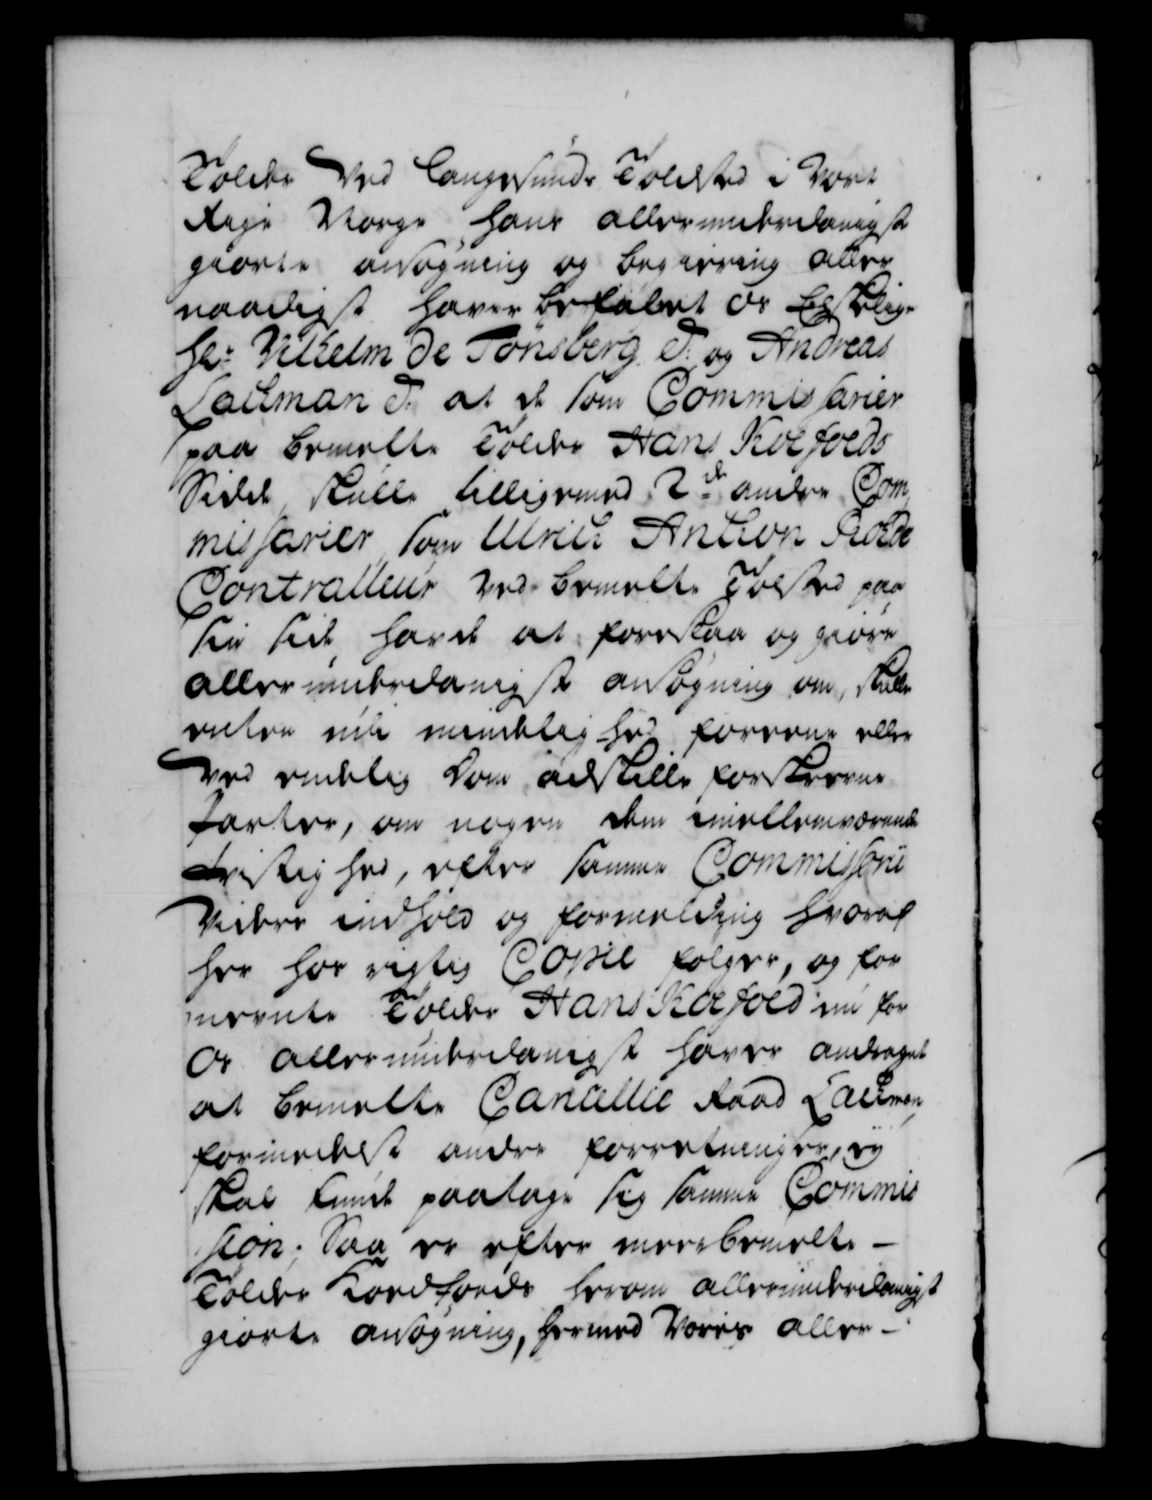 Tolder Ved Langesunds Toldsted i Vort
Rige Norge, hans allerunderdanigst
giorte ansøgning og begiering aller
naadigst haver befalet Os Elskelige
Hr: Vilhelm de Tønsberg. T: og Andreas
Lachman T. at de som Commissarier
paa bemelte Tolder Hans Koefoeds
Side, skulle tilligemed 2de andre Com
missarier, som Ulrich Anthon
Contralleur Ved bemelte Tolsted paa
sin side, havde at foreslaa og giøre
allerunderdanigst ansøgning om, skulle
enten udi mindelighed foreene eller
Ved endelig Dom adskille forskrevne
Parter, om nogen dem imellemværende
tvistighed, efter samme Commissorii
Videre indhold og formelding hvoraf
her hos rigtig Copie følger, og for
neevnte Tolder Hans Koefoed nu for
Os allerunderdanigst haver andraget
at bemelte Cancellie Raad Lachman,
formedelst andre forretninger, ey
skal kunde paatage sig samme Commis
sion; Saa er efter meerbemelte –
Tolder Koedfoeds herom allerunderdanigst
giorte ansøgning, hermed Vores aller –